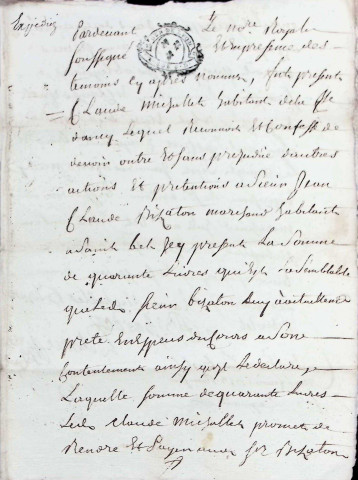 Expédiée
Pardevant Le nore Royal
soussigné Et en presence des
temoins cy apres nommés, fut present
Claude Michallet habitant de la
d'ancy Lequel Reconnoit Et Confesse
devoir outre Et sans prejudice dautres
actions Et pretentions a Sieur Jean
Claude Bizaton marchand habitant
a Saint present La Somme
de quarante Livres quil La semblable
que Led. Sieur bizaton Luy a
preté En Especes du Cours a Son
Contentement ainsy quil Le declare
Laquelle somme de quarante Livres
Led. Claude Michallet promet de
Rendre Et payer aud. Sr Bizaton